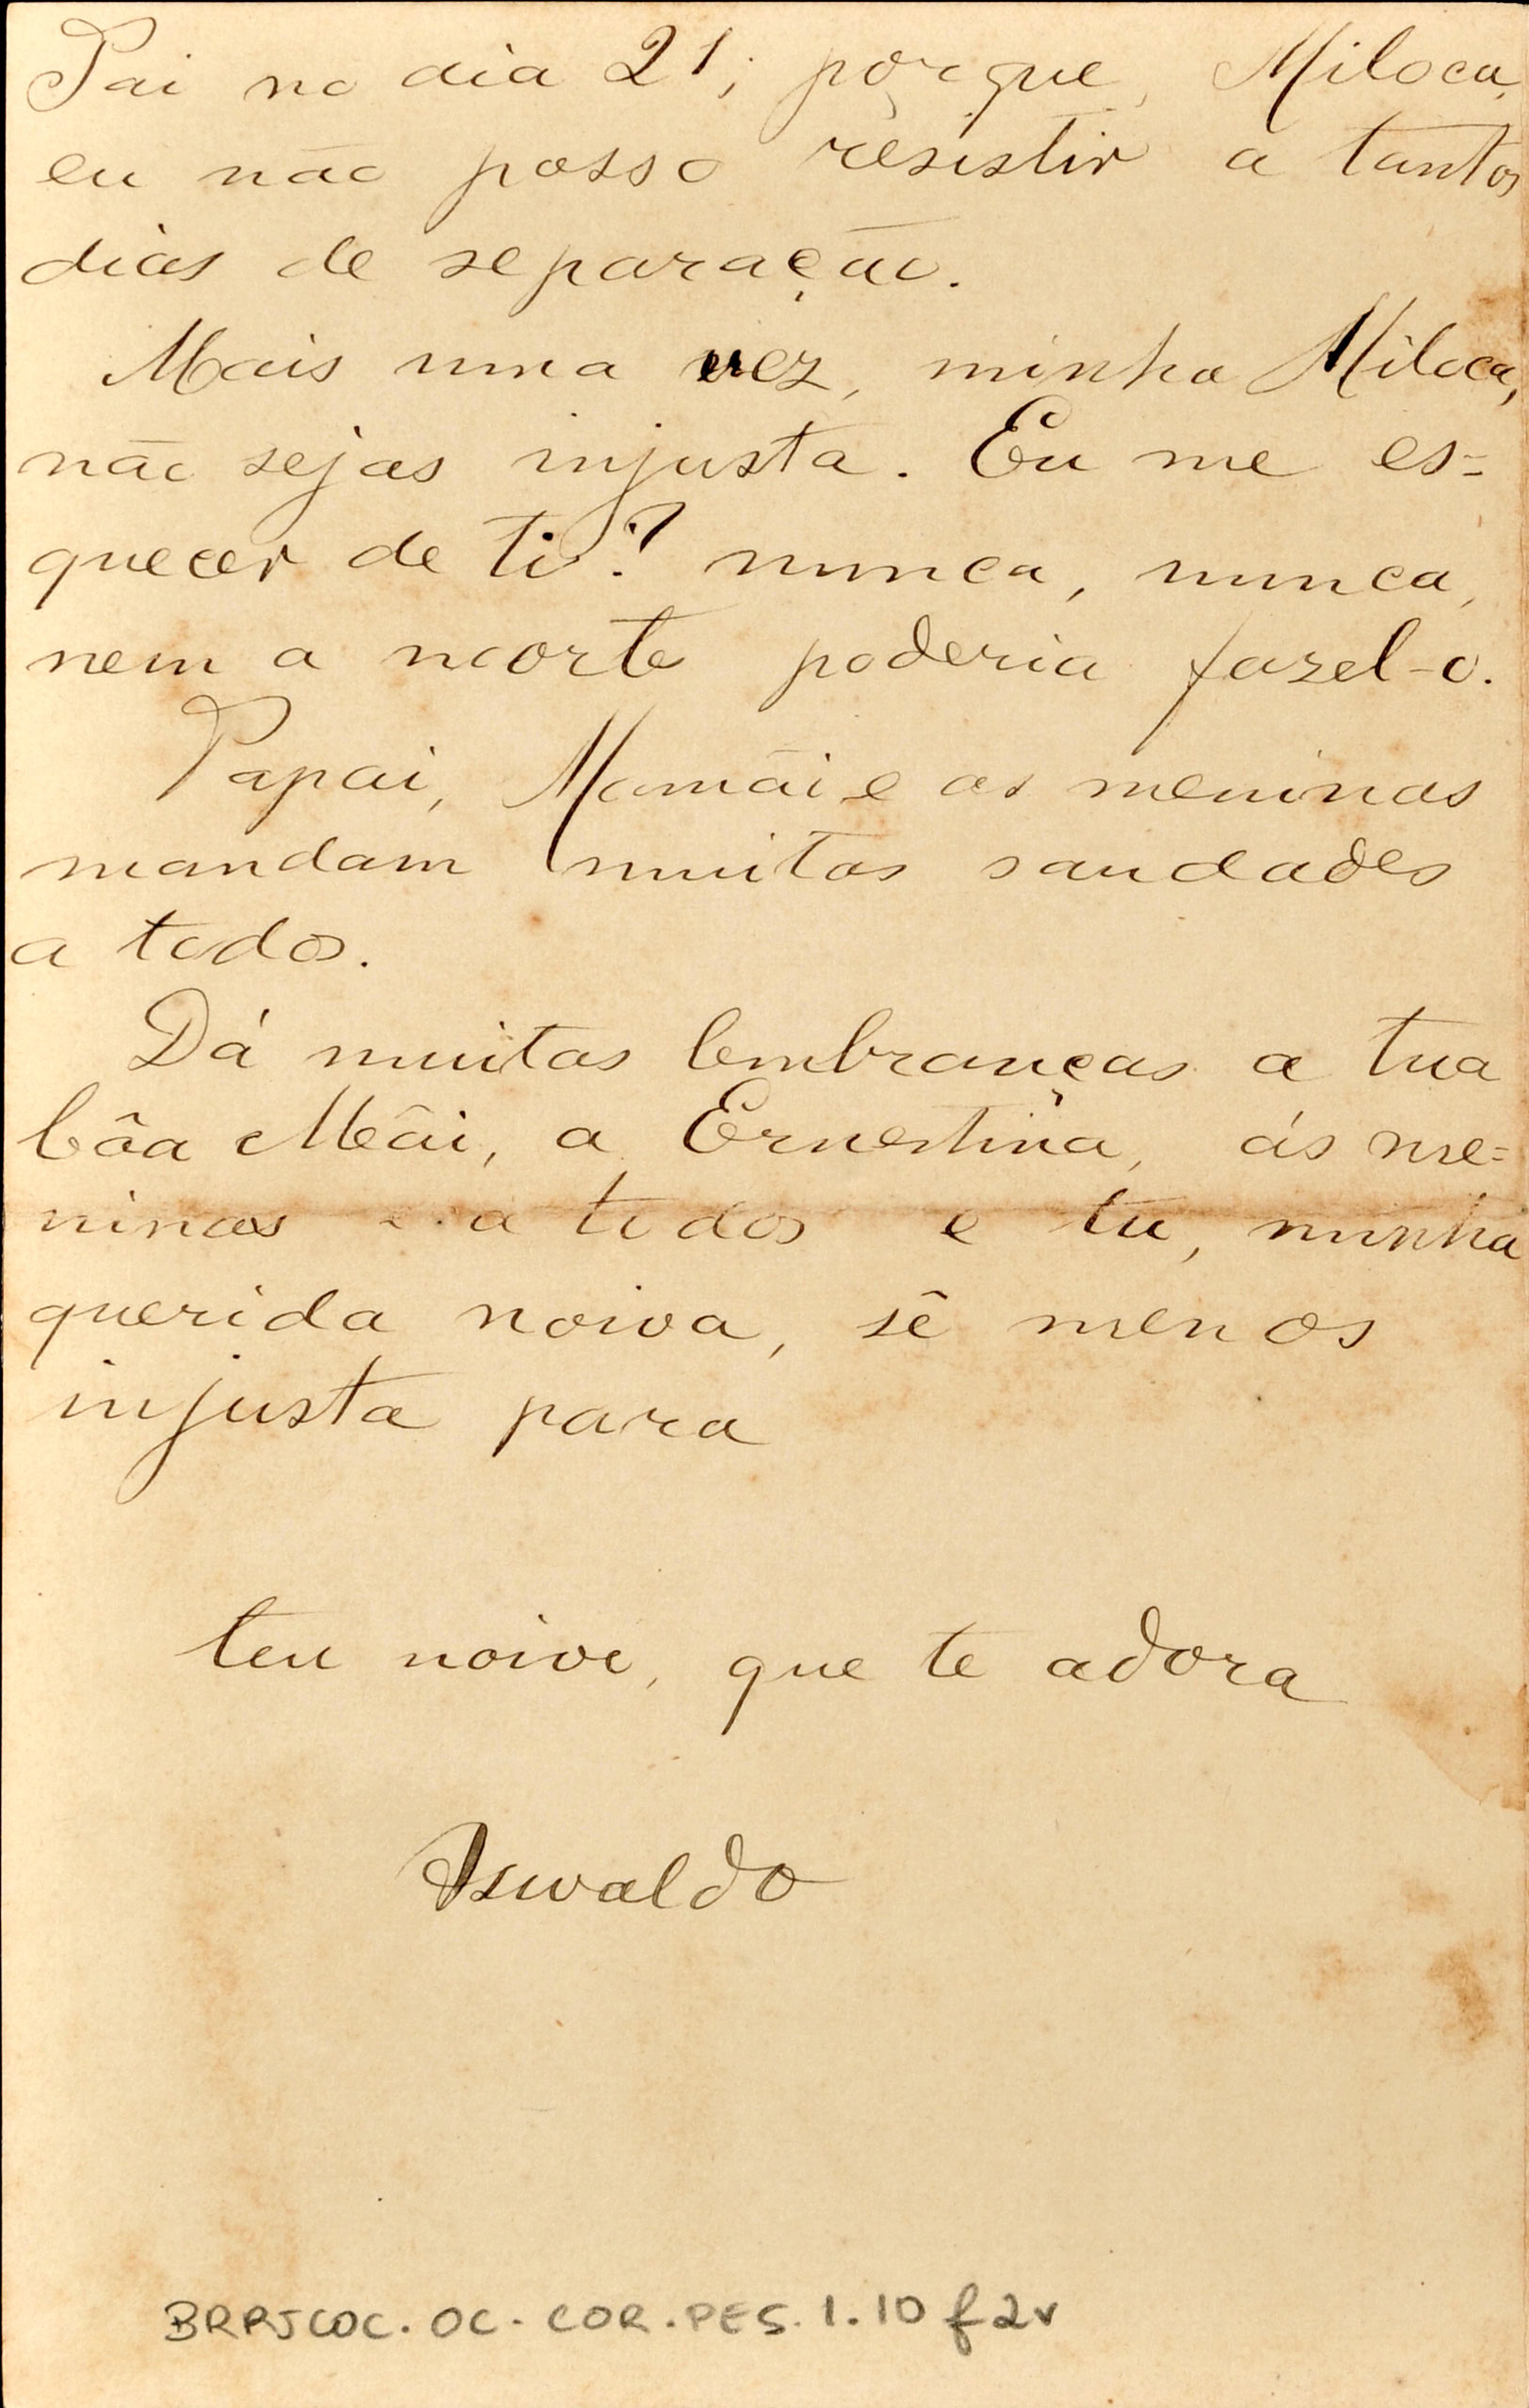 Pai no dia 21; porque, Miloca,
eu não posso resistir a tantos
dias de separação.
Mais uma vez, minha Miloca,
não sejas injusta. Eu me es=
quecer de ti? nunca, nunca,
nem a morte poderia fazel-o.
Papai, Mamãi e as meninas
mandam muitas saudades
a todos.
Dá muitas lembranças a tua
bôa Mãi, a Ernestina, ás me=
ninas e a todos e tu, minha
querida noiva, sê menos
injusta para
teu noivo, que te adora
Oswaldo
BRRJCOC.OC.COR.PES.1.10 f2v